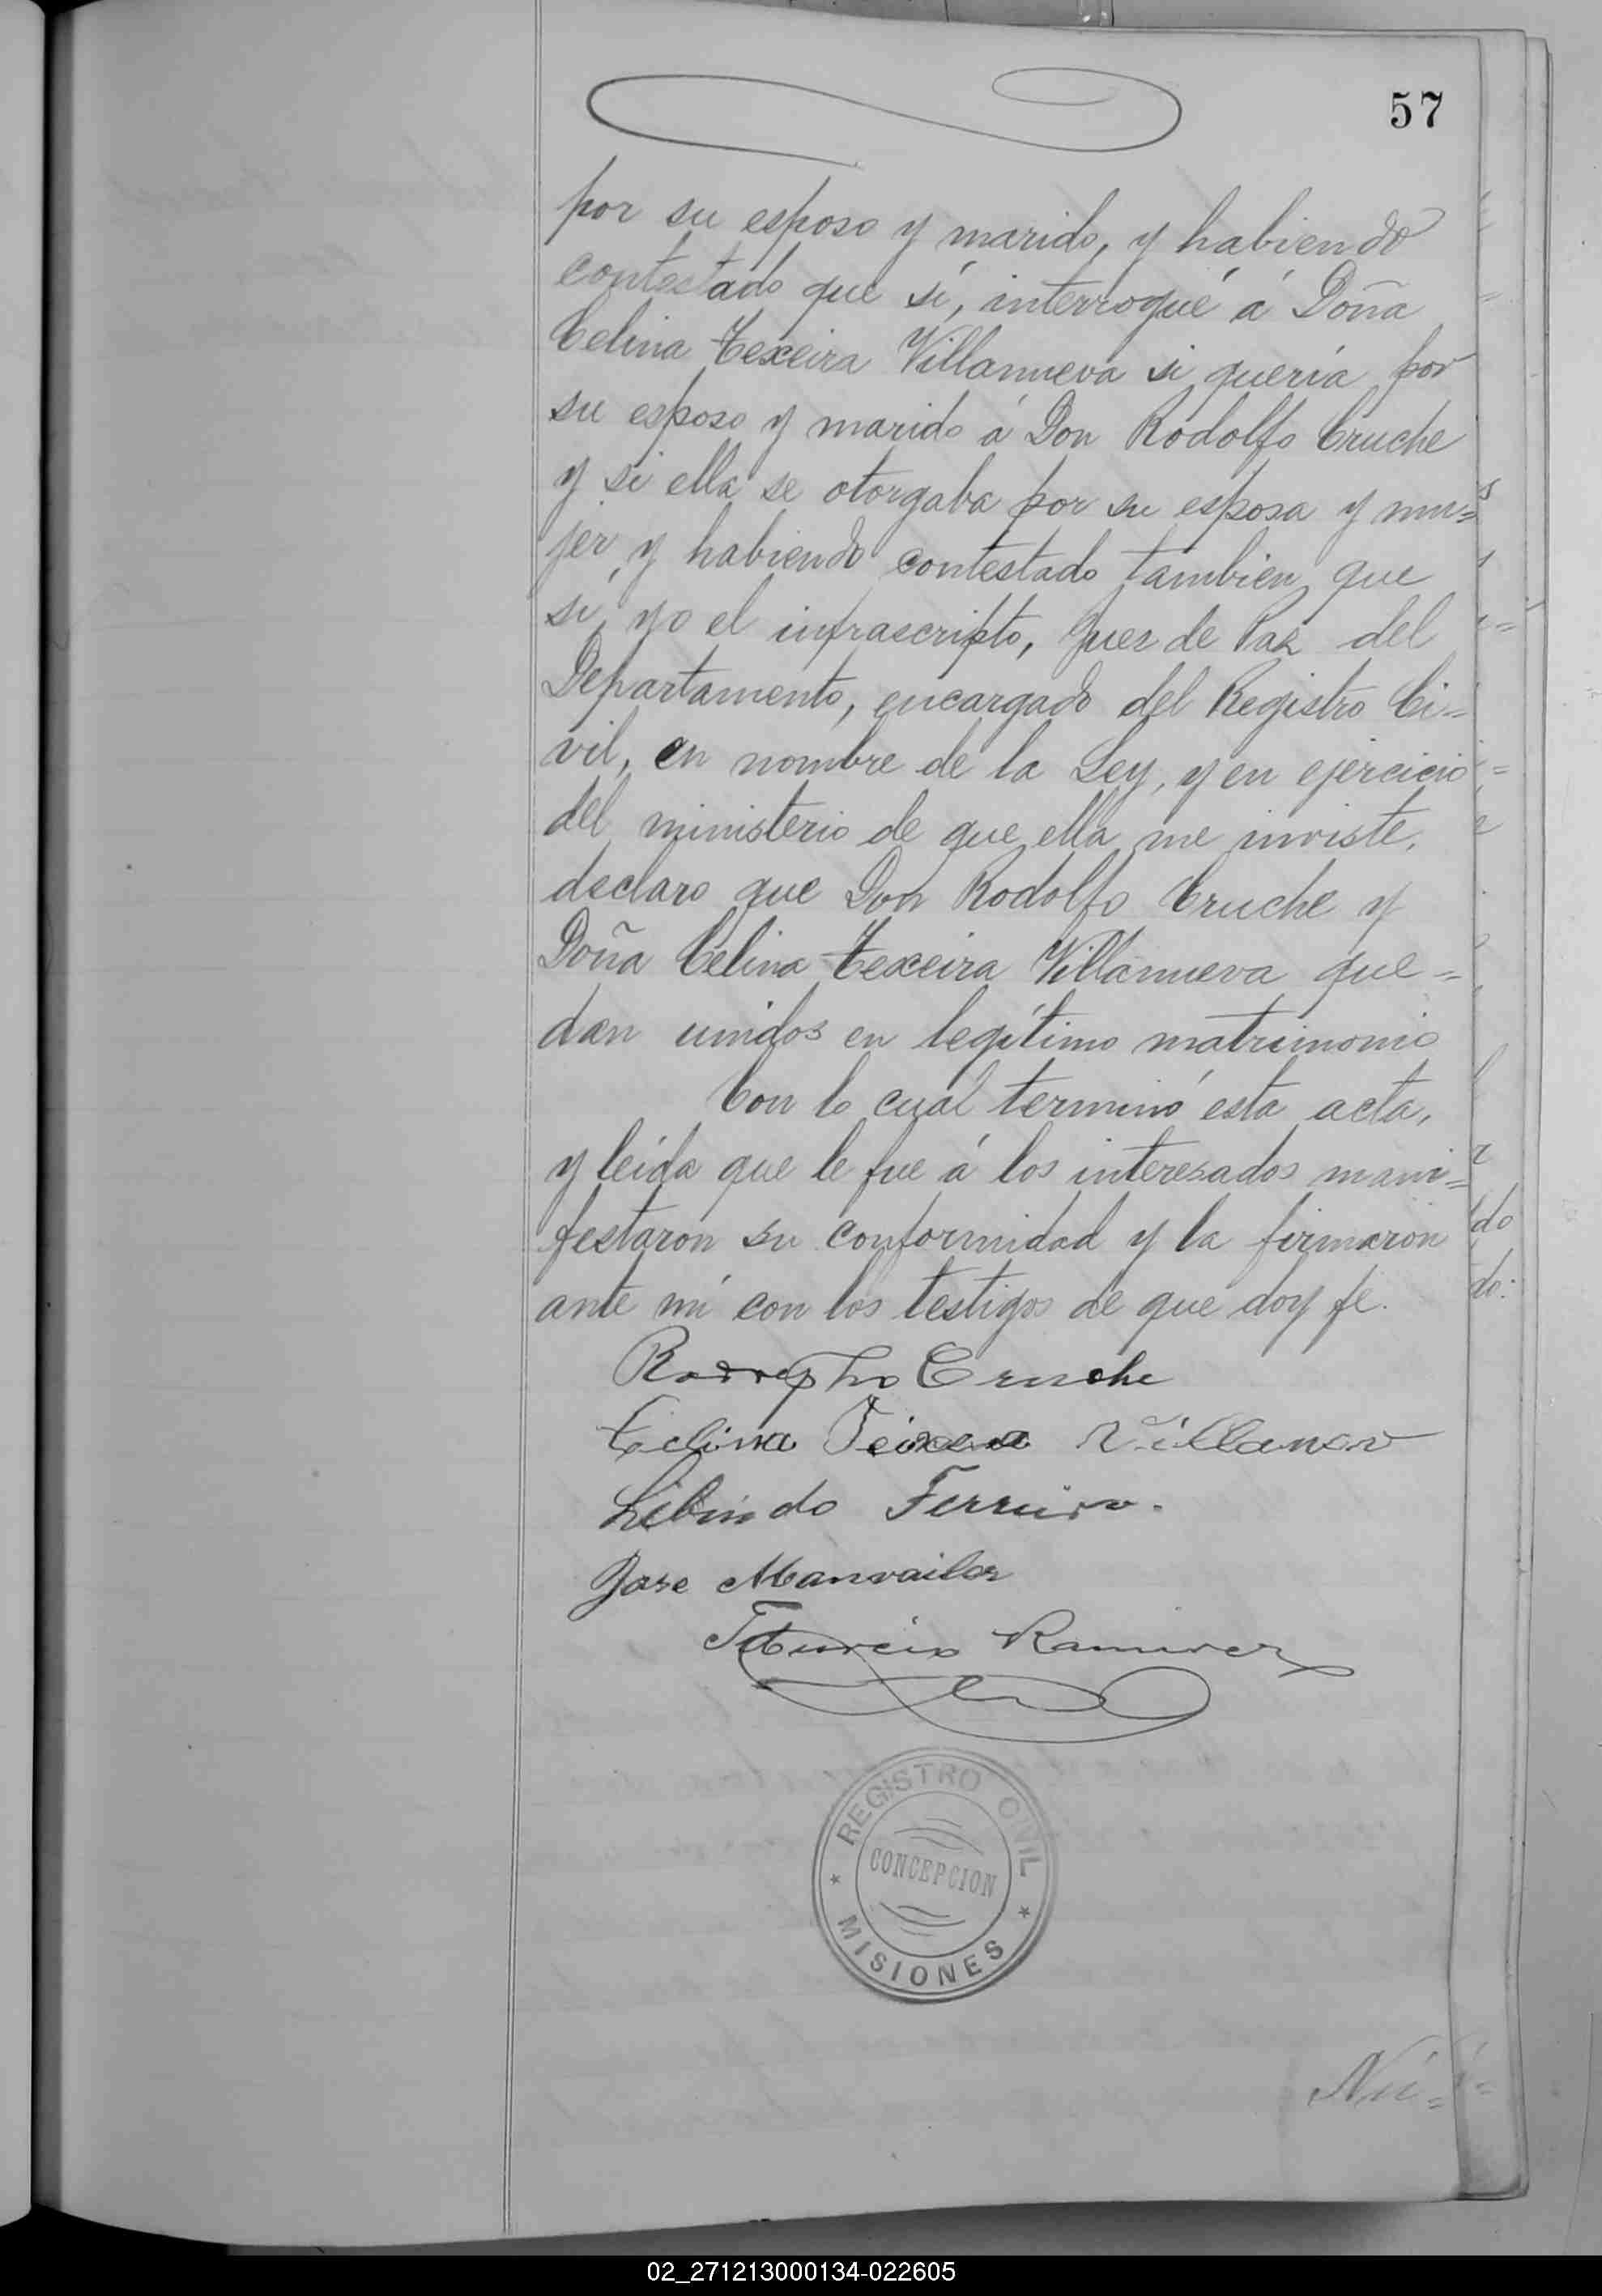 57
por su esposo y marido, y habiendo
contestado que sí, interrogué á Doña
Celina Texeira Villanueva si quería por
su esposo y marido á Don Rodolfo Cruche
y si ella se otorgaba por su esposa y mu=
jer, y habiendo contestado tambien que
sí, yo el infrascripto, Juez de Paz del
Departamento, encargado del Registro Ci=
vil, en nombre de la Ley, y en ejercicio
del ministerio de que ella me inviste,
declaro que Don Rodolfo Cruche y
Doña Celina Texeira Villanueva que=
dan unidos en legítimo matrimonio
Con lo cual terminó esta acta,
y leída que le fue á los interesados mani=
festaron su conformidad y la firmaron
ante mí con los testigos de que doy fe.
Cruche
Celina Teixera
Libindo Ferreira.
Jose Manvailer
Ramirez
REGISTRO CIVIL
CONCEPCION
MISIONES
Nú=
02_271213000134-022605